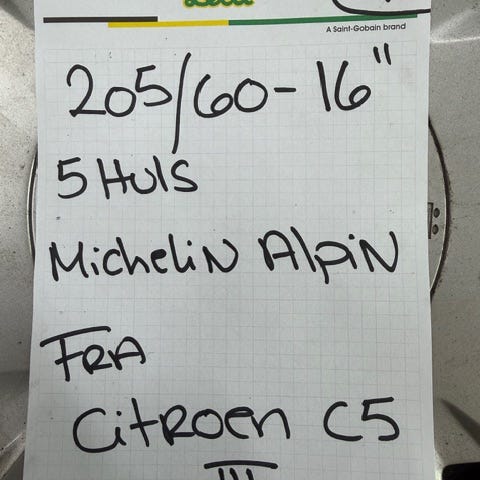 A Saint-Gobain brand
205/60-16"
5 Huls
Michelin Alpin
FRA
Citroen C5
III